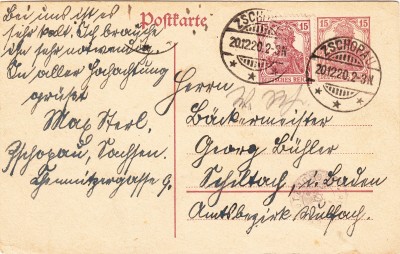 Bei uns ist es
sehr kalt. Ich brauche
ihn sehr notwendig.
In aller Hochachtung
grüßt
Max Sterl.
Zschopau, Sachsen.
Chemnitzergasse 9.
Postkarte
ZSCHOPAU
20.12.20.2-3N
15 15
DEUTSCHES REICH
15 15
ZSCHOPAU
20.12.20.2-3N
Herrn
Bäckermeister
Georg Bühler
Schiltach, i. Baden
Amtsbezirk Wolfach.